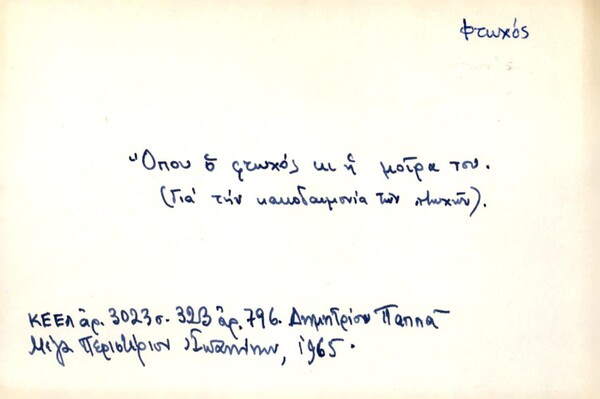 φτωχός
Ὅπου ὁ φτωχός κι ἡ μοῖρα του.
(Γιά τήν κακοδαιμονία τῶν πτωχῶν).
ΚΕΕΛ ἀρ. 3023 σ. 323 ἀρ. 796. Δημητρίου Παππᾶ
Μέγα Περιστέριον Ἰωαννίνων, 1965.